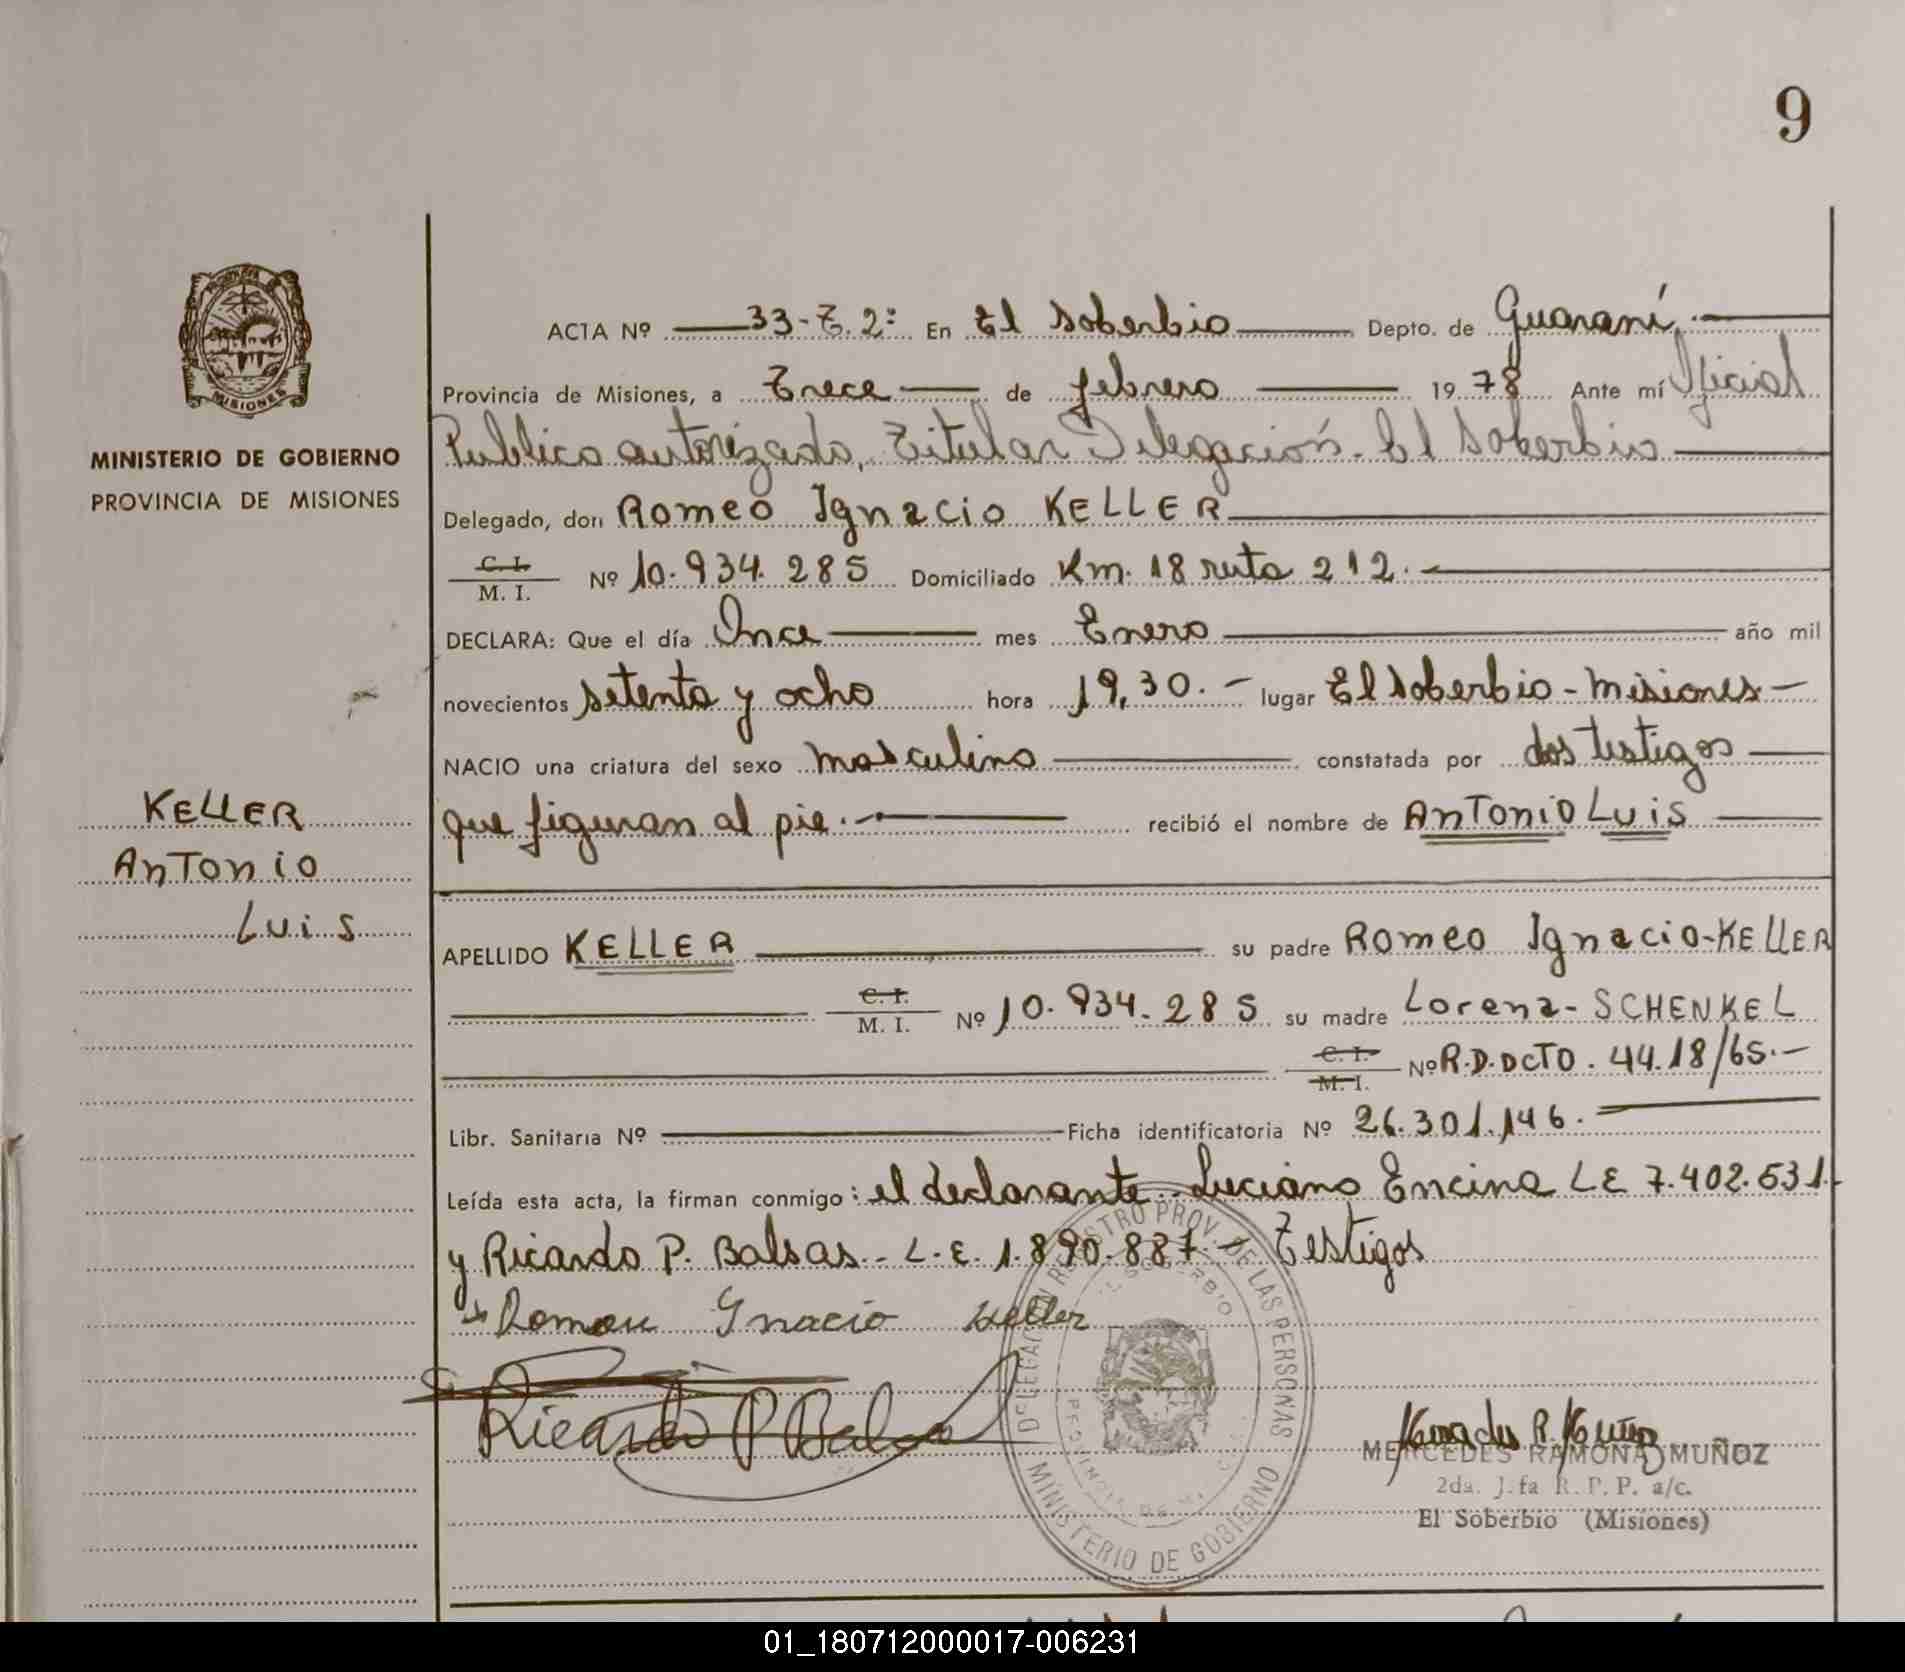 9
PROVINCIA DE
MISIONES
MINISTERIO DE GOBIERNO
PROVINCIA DE MISIONES
KELLER
ANTONIO
LUIS
ACTA Nº 33-T.2º En El Soberbio Depto. de Guaraní.
Provincia de Misiones, a Trece de febrero 1978 Ante mí Oficial
Publico autorizado, Titular Delegación. El Soberbio
Delegado, don Romeo Ignacio KELLER
C. I. M. I. Nº 10.934.285 Domiciliado Km. 18 ruta 212.-
DECLARA: Que el día Once mes Enero año mil
novecientos setenta y ocho hora 19,30.- lugar El Soberbio - Misiones -
NACIO una criatura del sexo masculino constatada por dos testigos
que figuran al pie.- recibió el nombre de ANTONIO LUIS
APELLIDO KELLER su padre Romeo Ignacio-KELLER
C. I. M. I. Nº 10.934.285 su madre Lorena- SCHENKEL
C. I. M. I. Nº R.D.DCTO. 44.18/65.-
Libr. Sanitaria Nº Ficha identificatoria Nº 26.301.146.
Leída esta acta, la firman conmigo: el declarante.. Luciano Encina LE 7.402.531.-
y Ricardo P. Balsas.. L.E. 1.890.887.- Testigos
Ignacio Keller
Ricardo P Balsas
DELEGACION REGISTRO PROV. DE LAS PERSONAS
EL SOBERBIO
PROVINCIA DE
MINISTERIO DE GOBIERNO
Mercedes R. Muñoz
MERCEDES RAMONA MUÑOZ
2da. J.fa R. P. P. a/c.
El Soberbio (Misiones)
01_180712000017-006231